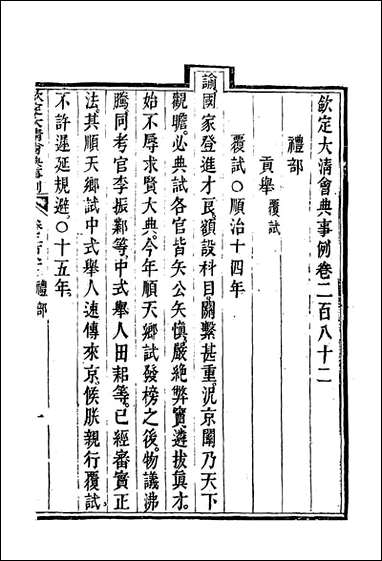 欽定大清會典事例卷二百八十二
禮部
貢舉覆試
覆試○順治十四年
諭國家登進才良額設科目關繫甚重況京闈乃天下
觀瞻必典試各官皆矢公矢愼嚴絕弊竇遴拔眞才
始不辱求賢大典今年順天鄉試發榜之後物議沸
騰同考官李振鄴等中式舉人田耜等已經審實正
法其順天鄉試中式舉人速傳來京候朕親行覆試
不許遲延規避○十五年
禮部
一